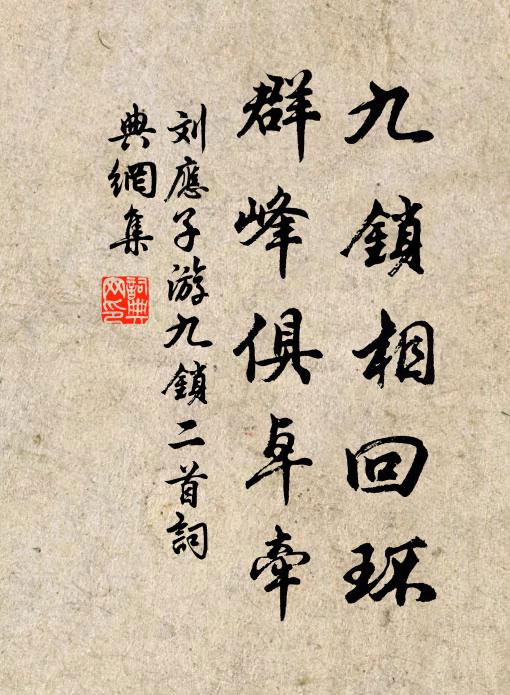 九鎖相回环
群峰俱卓牵
刘應子游九鎖二首詞
典網集
詞典網印